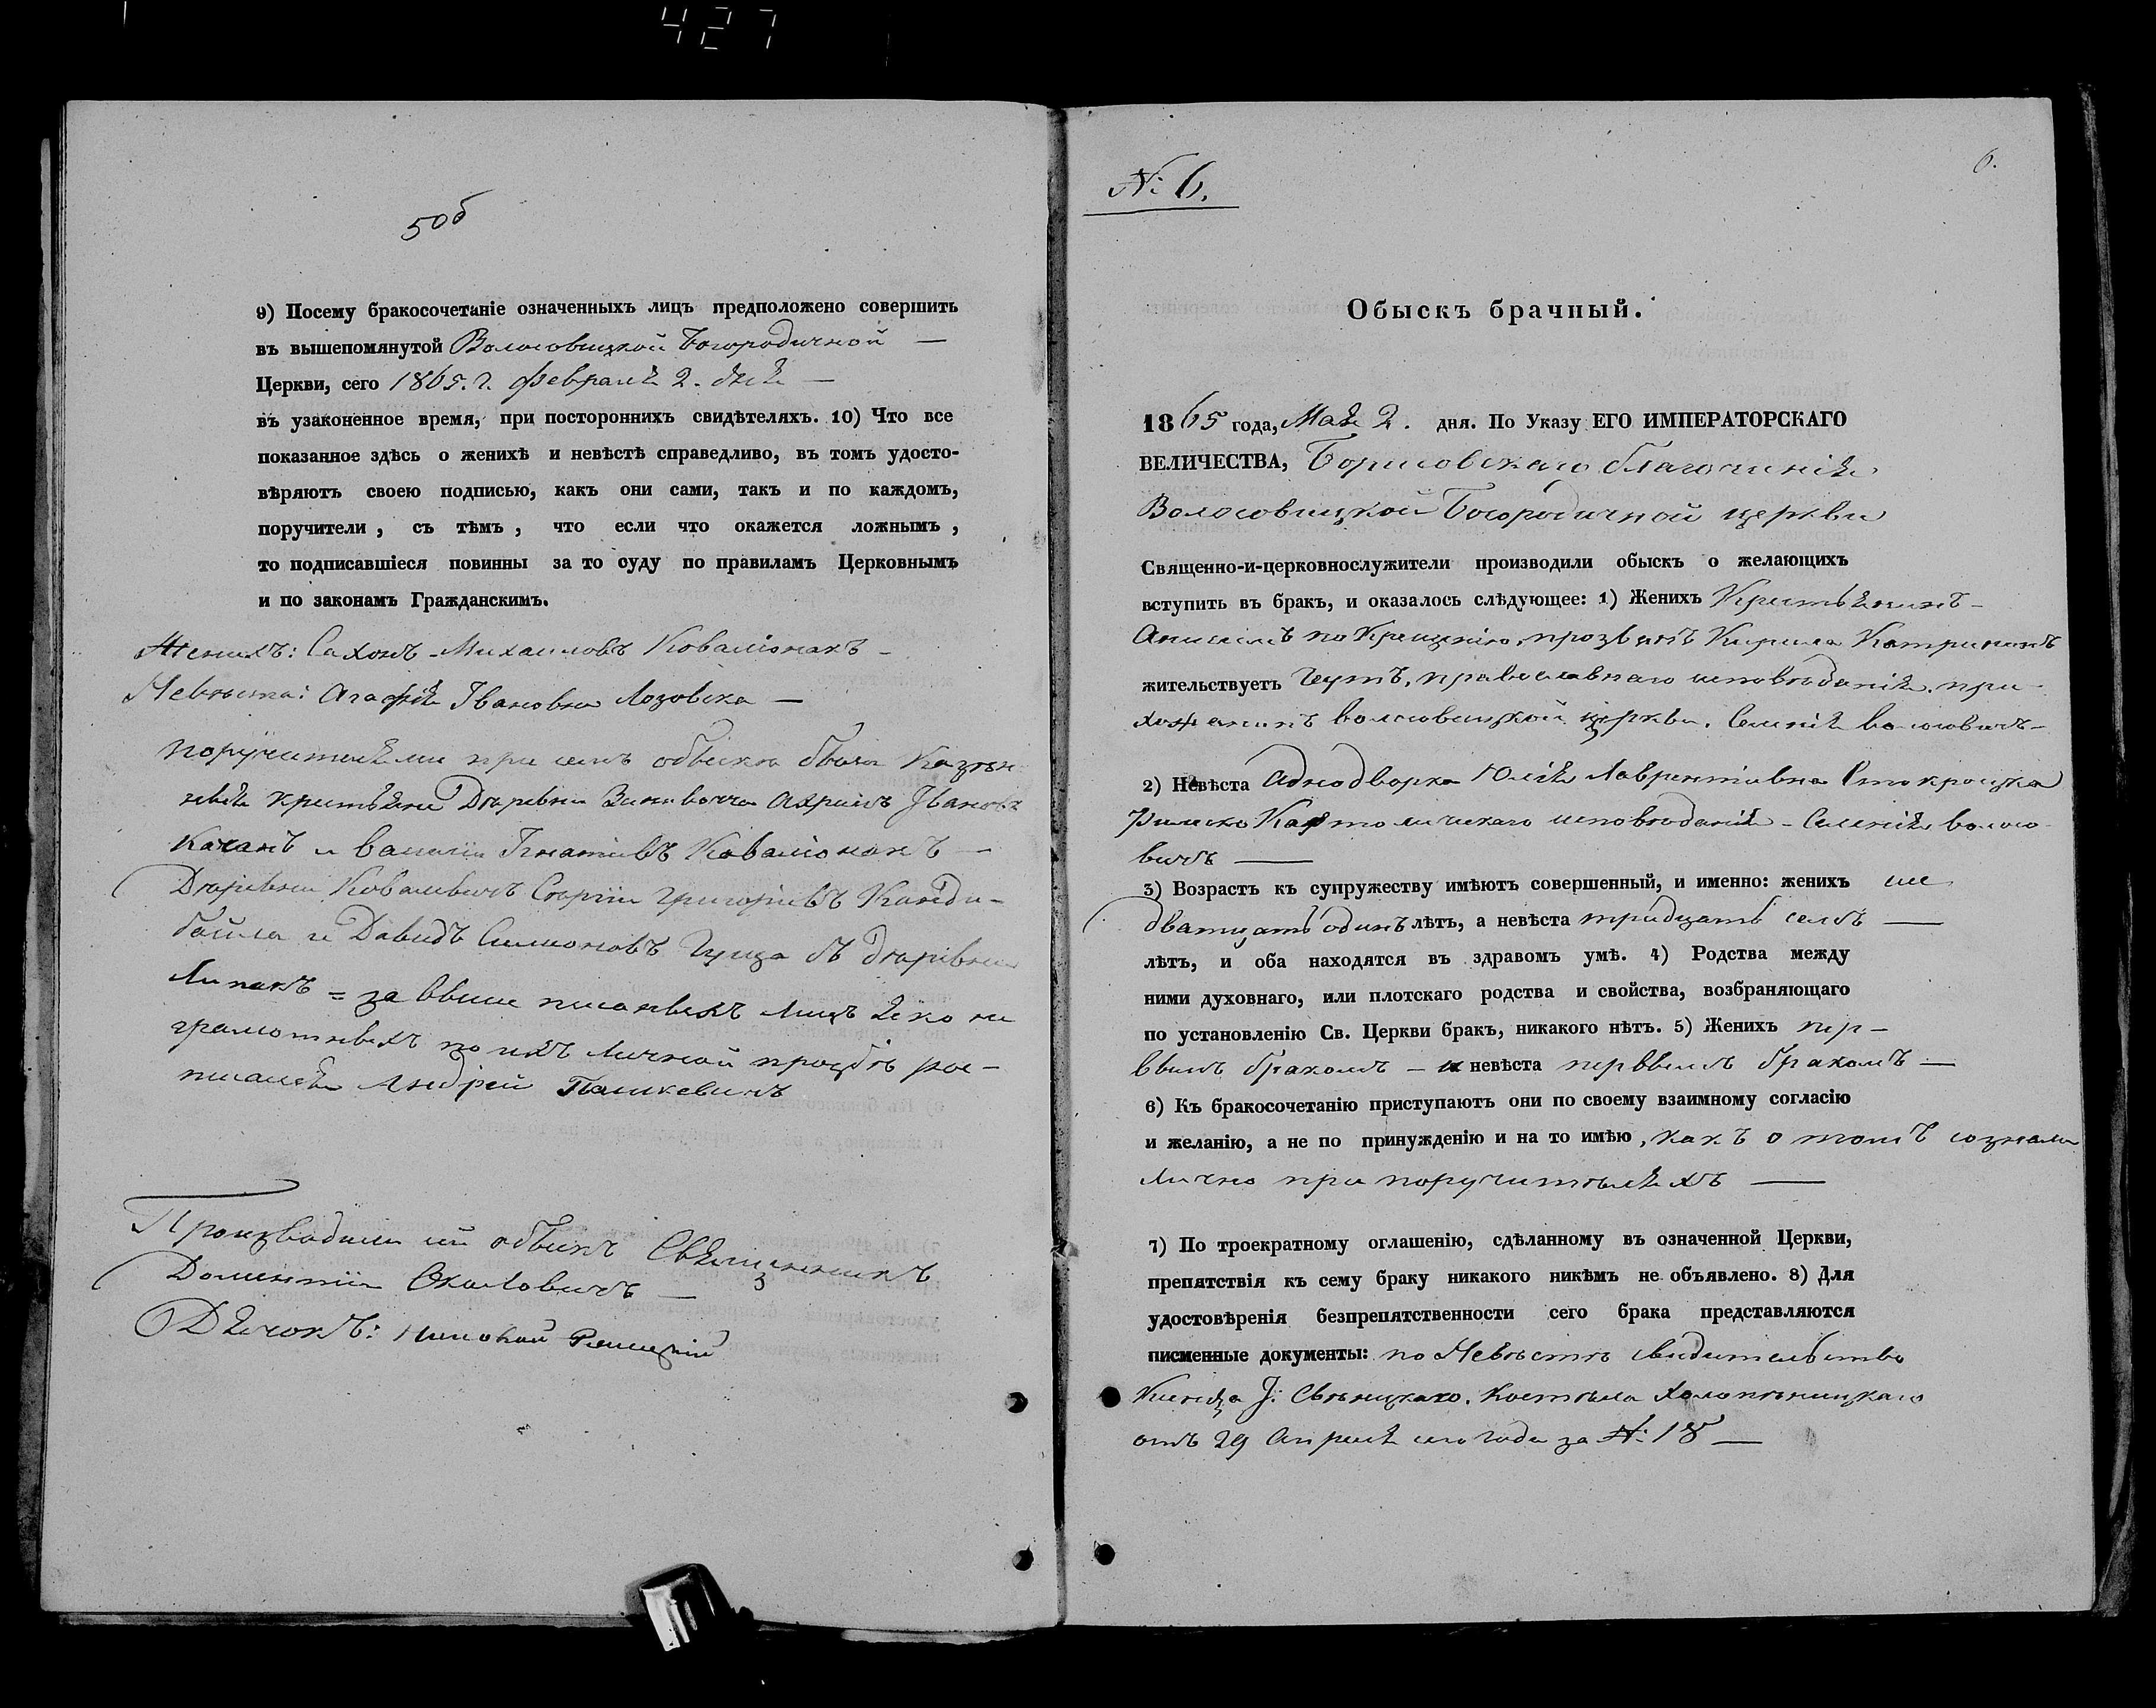 427
5об
9) Посему бракосочетаніе означенныхъ лицъ предположено совершить
въ вышепомянутой Волосовицкой Богородичной —
Церкви, сего 1865. г. февраля 2. дня —
въ узаконенное время, при постороннихъ свидѣтеляхъ. 10) Что все
показанное здѣсь о женихѣ и невѣстѣ справедливо, въ томъ удосто-
вѣряютъ своею подписью, какъ они сами, такъ и по каждомъ,
поручители, съ тѣмъ, что если что окажется ложнымъ,
то подписавшіеся повинны за то суду по правиламъ Церковнымъ
и по законамъ Гражданскимъ.
Женихъ: Сахонъ Михаиловъ Коваліонакъ –
Невѣста: Агафія Івановна Лозовска —
поручителями при семъ обыскѣ были Казен-
ныя крестьяне Дѣревни Ахрімъ Іванов
Каханъ и василій Игнатіевъ Ковалионакъ —
Дѣревни Ковалевичъ Сергій Григоріевъ Канди-
и Давидъ Симоновъ Гуща съ дѣревни
Липакъ = за выше писаныхъ лицъ яко не
грамотныхъ по ихъ личной прозбѣ рос-
писался Андрей Пашкевичъ
Произвадили сій обыскъ Священникъ
Доментій Окаловичъ —
Дячокъ:
№ 6.
6.
Обыскъ брачный.
1865 года, Мая 2. дня. По Указу ЕГО ИМПЕРАТОРСКАГО
ВЕЛИЧЕСТВА, Борисовскаго благочинія
Волосовицкой Богородичной церкви
Священно-и-церковнослужители производили обыскъ о желающихъ
вступить въ брак, и оказалось слѣдующее: 1) Женихъ Крестьянинъ –
Анисимъ по Крещенію, прозваніе Кирила Катринакъ
жительствуетъ православнаго исповѣданія, при
хожанинъ волосовицкой церкви. Селенія волосовичъ –
2) Невѣста аднодворка Юлія Лаврентіевна
Римско Католическаго исповѣданія – Селенія волосо
вичъ —
3) Возрастъ къ супружеству имѣютъ совершенный, и именно: женихъ
дватцать одинъ лѣтъ, а невѣста тридцать семь —
лѣтъ, и оба находятся въ здравомъ умѣ. 4) Родства между
ними духовнаго, или плотскаго родства и свойства, возбраняющаго
по установленію Св. Церкви брак, никакого нѣтъ. 5) Женихъ пер –
вымъ бракомъ – и невѣста первымъ бракомъ —
6) Къ бракосочетанію приступаютъ они по своему взаимному согласію
и желанію, а не по принужденію и на то имѣю, какъ о томъ сознали
лично при поручителяхъ —
7) По троекратному оглашенію, сдѣланному въ означенной Церкви,
препятствія къ сему браку никакого никѣмъ не объявлено. 8) Для
удостовѣренія безпрепятственности сего брака представляются
писменные документы: по Невѣстѣ свидительство
Ксендза І: Свѣницкаго, Костѣла Холопѣницкаго
отъ 29 Апреля сего года за №: 18 —